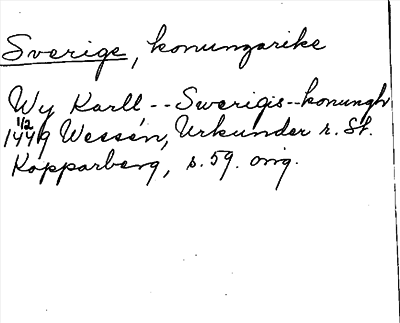 Sverige, konungarike
Wy Karll -- Swerigis -- konungh
1/2
1449 Wessén, Urkunder r. St.
Kopparberg, s. 59. orig.